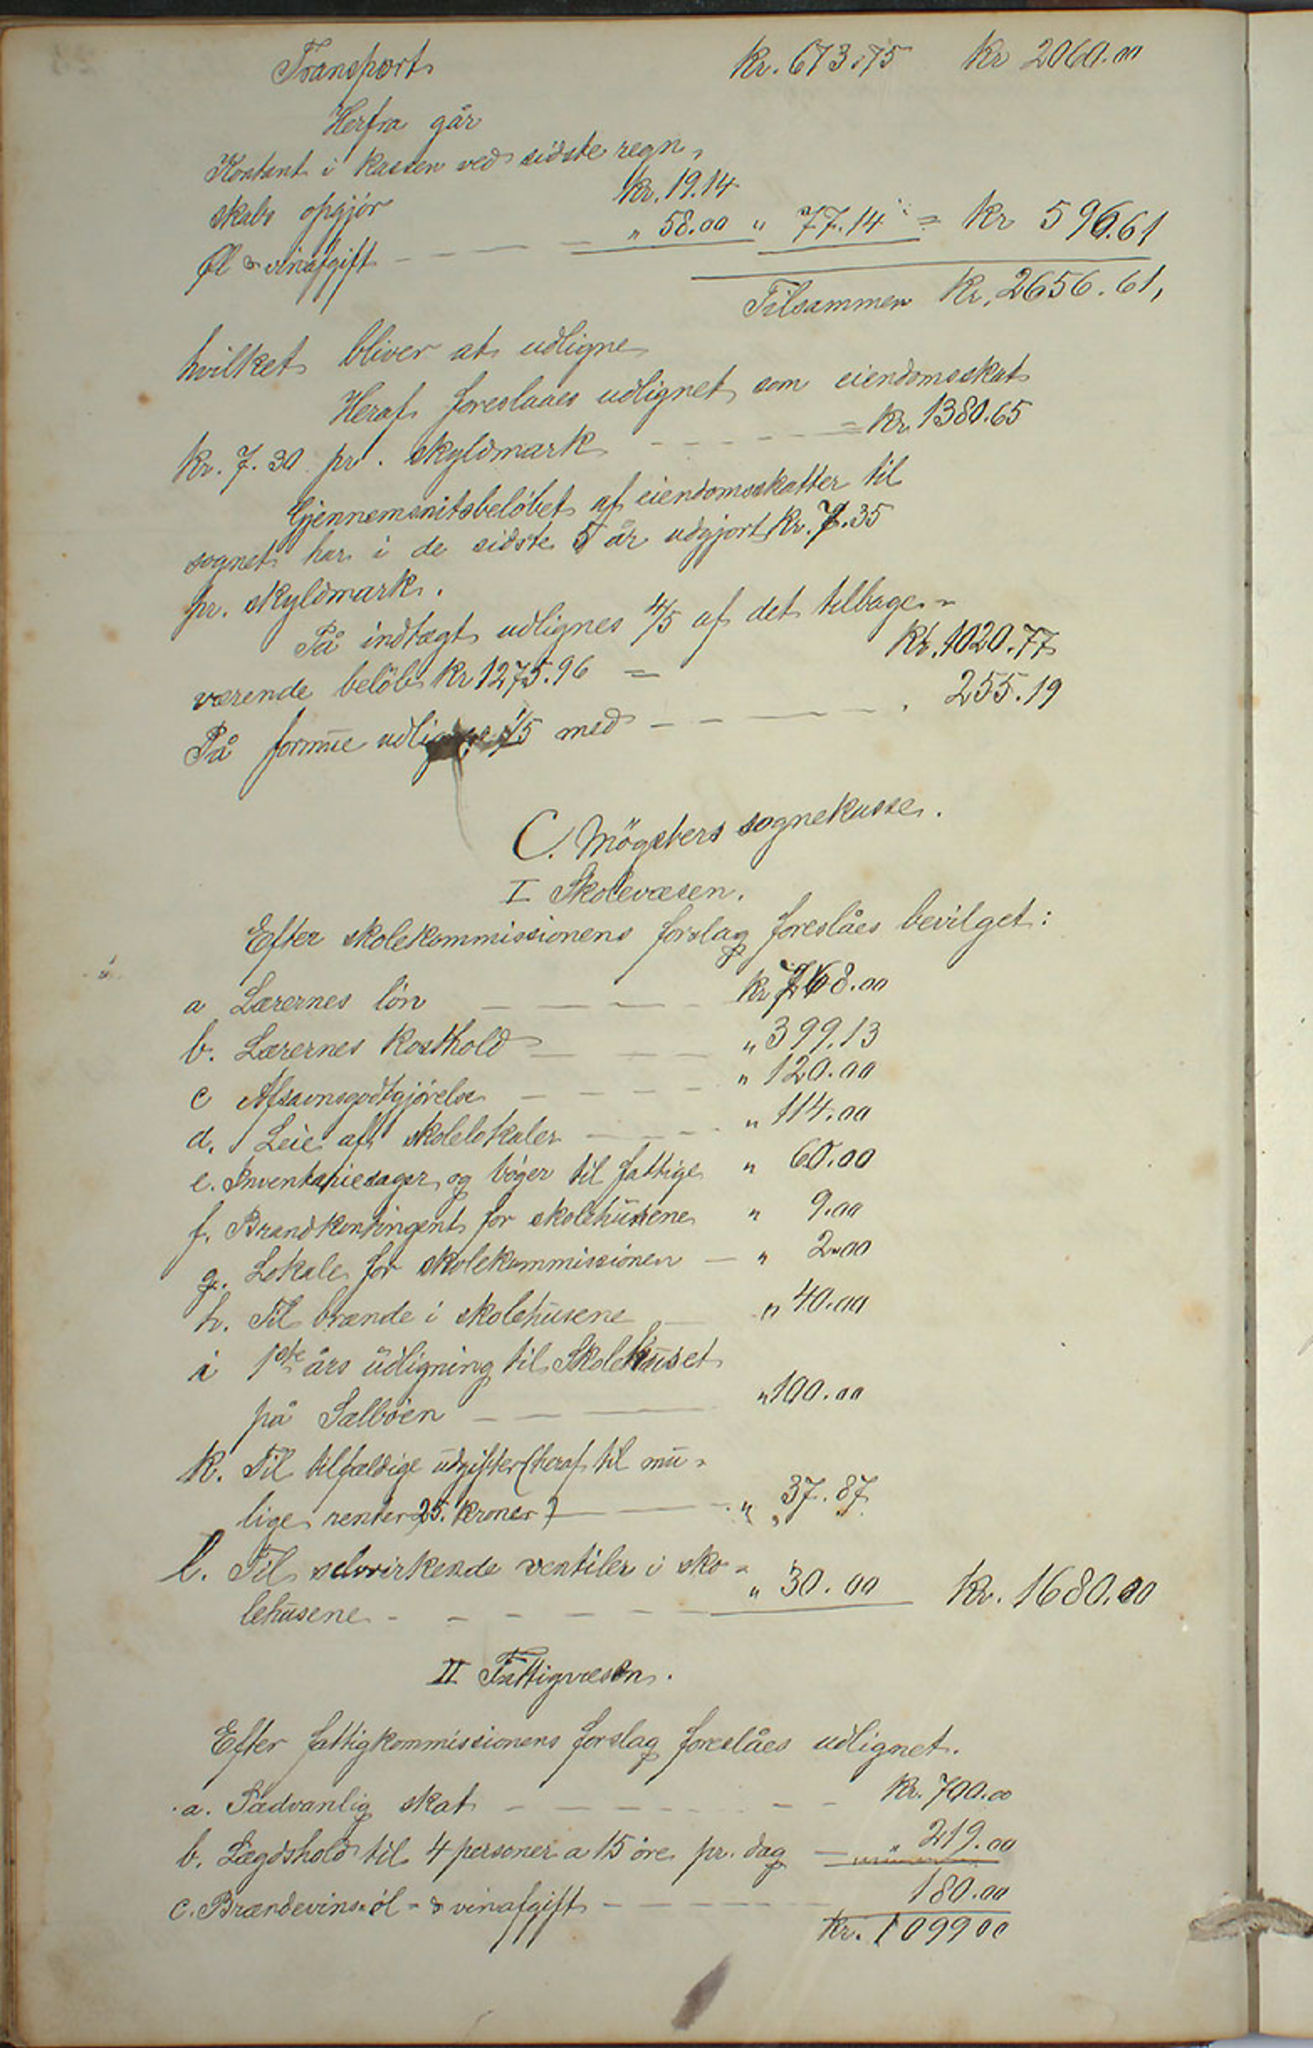 Transport kr. 673.75 kr 2060.00
Herfra går
Kontant i kassen ved sidste regn-
skabs opgjør kr. 19.14
Øl & vinafgift — — — " 58.00 " 77.14 = kr 596.61
Tilsammen kr. 2656.61,
hvilket bliver at udligne
Heraf foreslaaes udlignet som eiendomsskat
kr. 7.30 pr. skyldmark — — — = kr. 1380.65
Gjennemsnitsbeløbet af eiendomsskatter til
sognet har i de sidste 5 år udgjort kr. 7.35
pr. skyldmark.
På indtægt udlignes 4/5 af det tilbage-
værende beløb kr 1275.96 = kr. 1020.77
På formue udlignes 1/5 med — — — " 255.19
C. Møgsters sognekasse.
I Skolevæsen.
Efter skolekommissionens forslag foreslåes bevilget:
a Lærernes løn — — — kr 768.00
b. Lærernes Kosthold — — — " 399.13
c Afsavnsgodtgjørelse — — — " 120.00
d. Leie af skolelokaler — — — " 114.00
e. Inventariesager og bøger til fattige " 60.00
f. Brandkontingent for skolehusene " 9.00
g. Lokale for skolekommissionen — " 2.00
h. Til brænde i skolehusene — " 40.00
i 1ste års udligning til Skolehuset
på Sælbøen — — — " 100.00
k. Til tilfældige udgifter (heraf til mu-
lige renter 25. kroner) — — " 37.87
l. Til selvvirkende ventiler i sko-
lehusene - — — — — " 30.00 kr. 1680.00
II Fattigvæsen.
Efter fattigkommissionens forslag foreslåes udlignet.
a. Sædvanlig skat — — — kr. 700.00
b. Lægdshold til 4 personer a 15 øre pr. dag — " 219.00
c. Brændevins- øl- & vinafgift — — — 180.00
kr. 1099 00